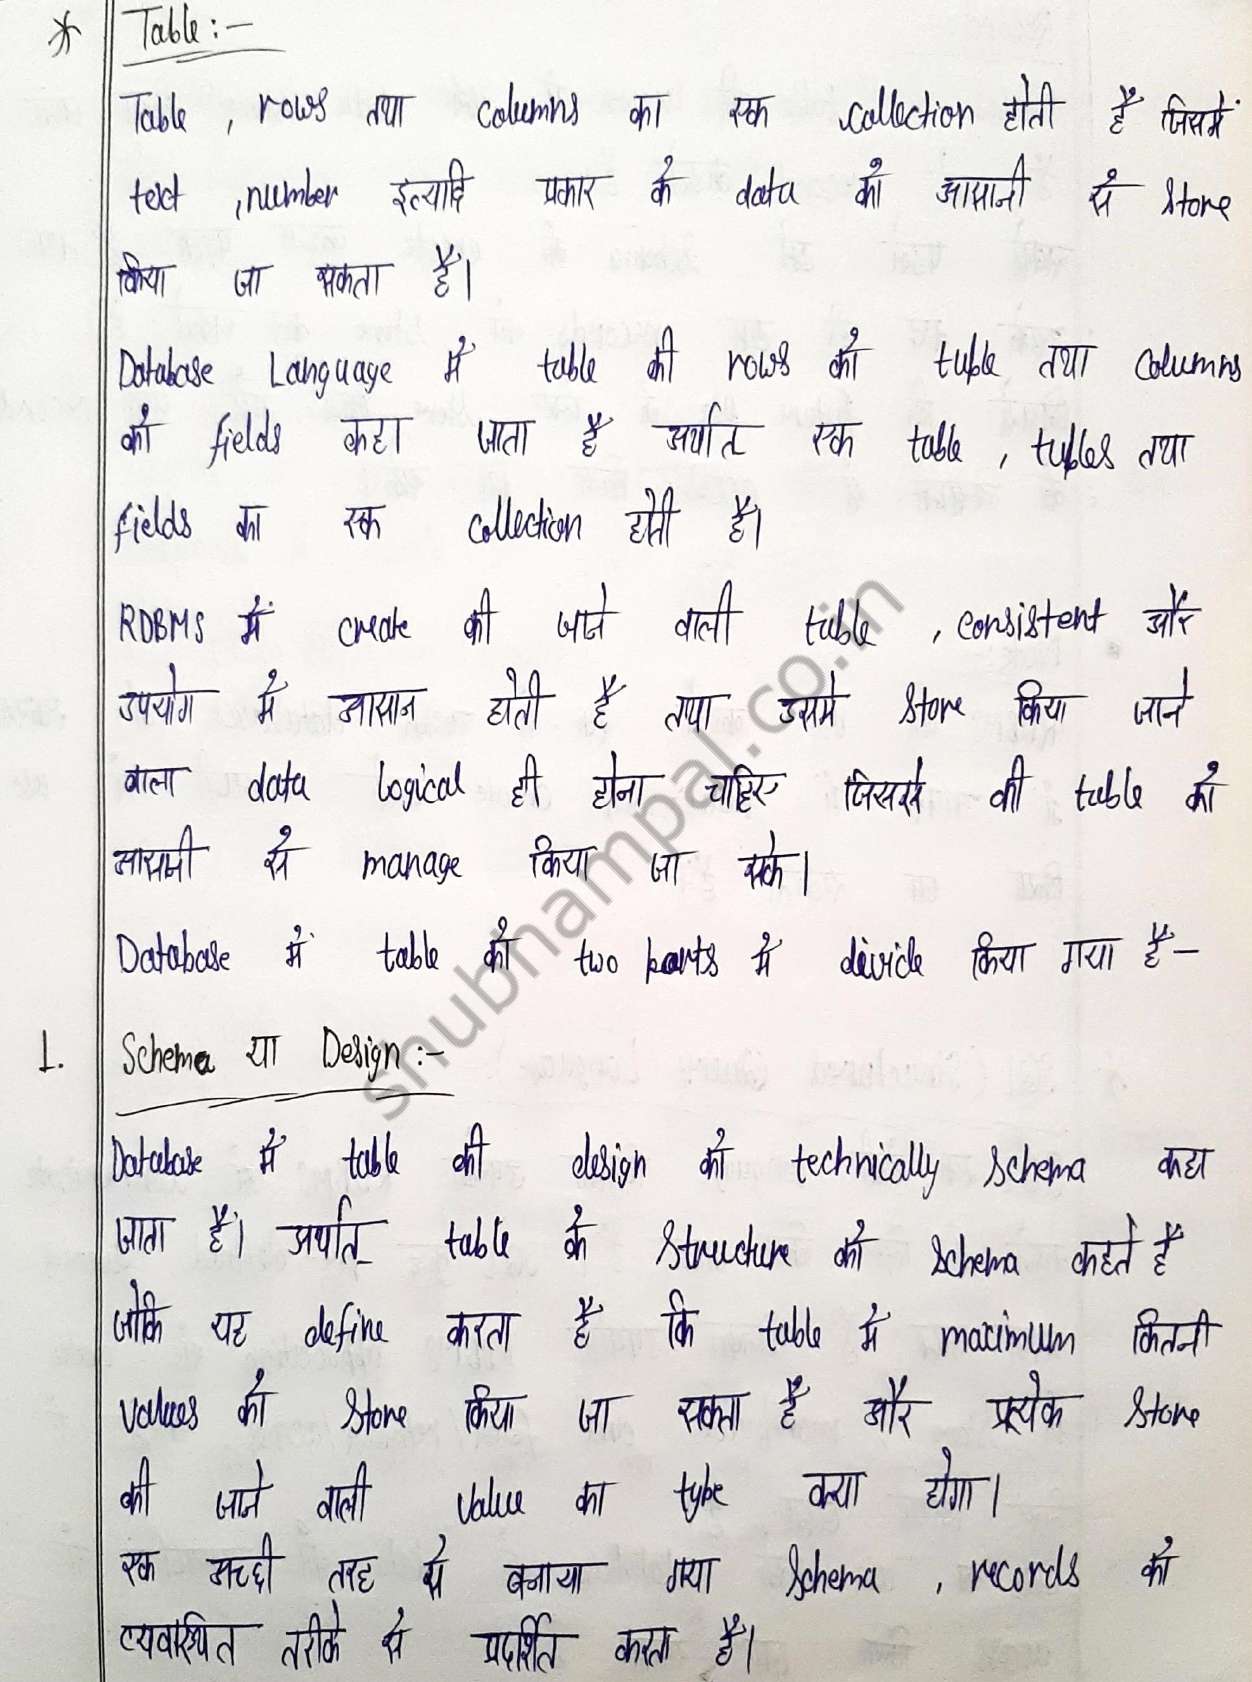 * Table :-
Table , rows तथा columns का एक collection होती है जिसमें
text , number इत्यादि प्रकार के data को आसानी से store
किया जा सकता है।
Database Language में table की rows को tuple तथा columns
को fields कहा जाता है अर्थात् एक table , tuples तथा
fields का एक collection होती है।
RDBMS में create की जाने वाली table , consistent और
उपयोग में आसान होती है तथा उसमे store किया जाने
वाला data logical ही होना चाहिए जिससे की table को
आसानी से manage किया जा सके।
Database में table को two parts में divide किया गया है –
1. Schema या Design :-
Database में table की design को technically schema कहा
जाता है। अर्थात् table के structure को schema कहते है
जोकि यह define करता है कि table में maximum कितनी
values को store किया जा सकता है और प्रत्येक store
की जाने वाली value का type क्या होगा।
एक अच्छी तरह से बनाया गया schema , records को
व्यवस्थित तरीके से प्रदर्शित करता है।
shubhampal.co.in